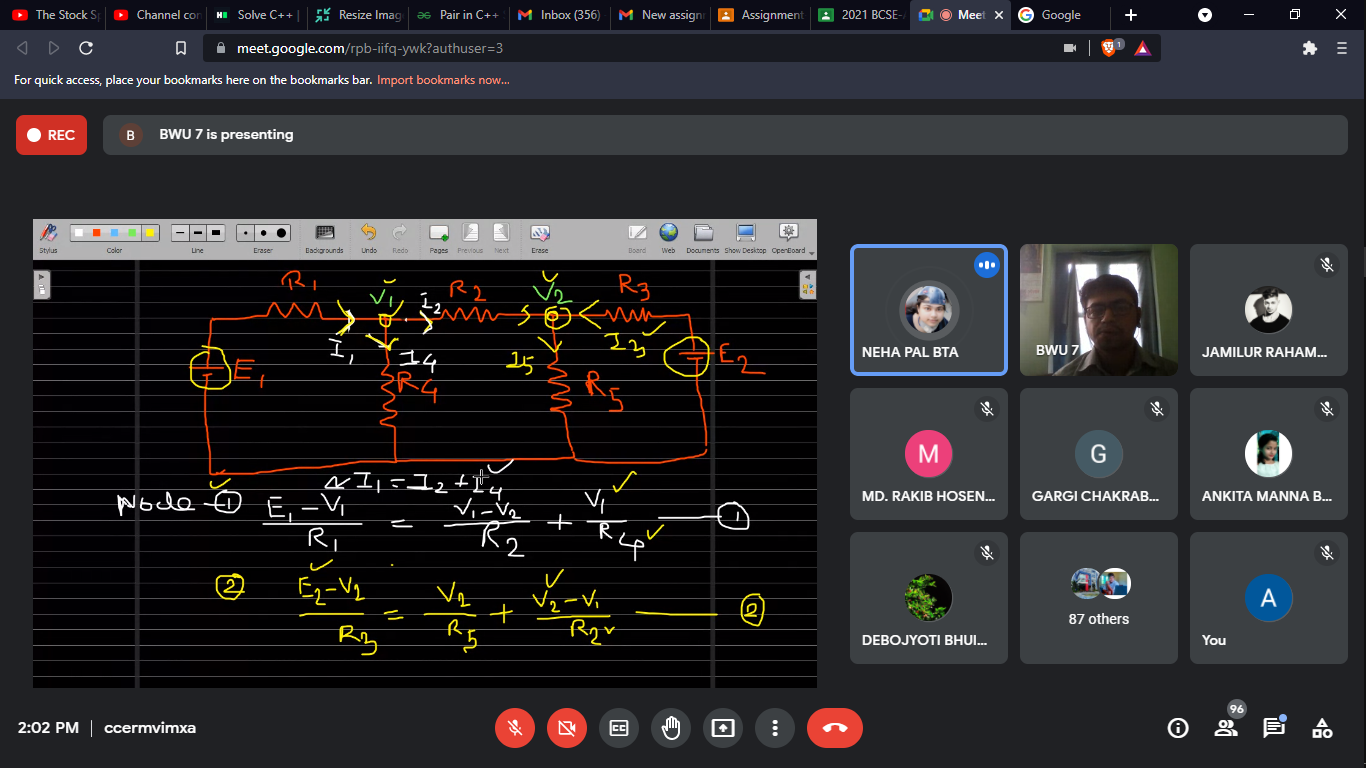 The Stock S
Channel con
Solve C++ |
Resize Imag
Pair in C++
Inbox (356)
New assignr
Assignment
2021 BCSE-
Meet
Google
meet.google.com/rpb-iifq-ywk?authuser=3
1
For quick access, place your bookmarks here on the bookmarks bar. Import bookmarks now...
REC
B
BWU 7 is presenting
Stylus
Color
Line
Eraser
Backgrounds
Undo
Redo
Pages
Previous
Next
Erase
Board
Web
Documents
Show Desktop
OpenBoard
R1 V1 I2 R2 V2 R3
I1 I4 I5 I3
E1 R4 R5 E2
I1 = I2 + I4
Node - ① E1 - V1 / R1 = V1 - V2 / R2 + V1 / R4 — ①
② E2 - V2 / R3 = V2 / R5 + V2 - V1 / R2 — ②
NEHA PAL BTA
BWU 7
JAMILUR RAHAM...
M
MD. RAKIB HOSEN...
G
GARGI CHAKRAB...
ANKITA MANNA B...
DEBOJYOTI BHUI...
87 others
A
You
2:02 PM | ccermvimxa
96